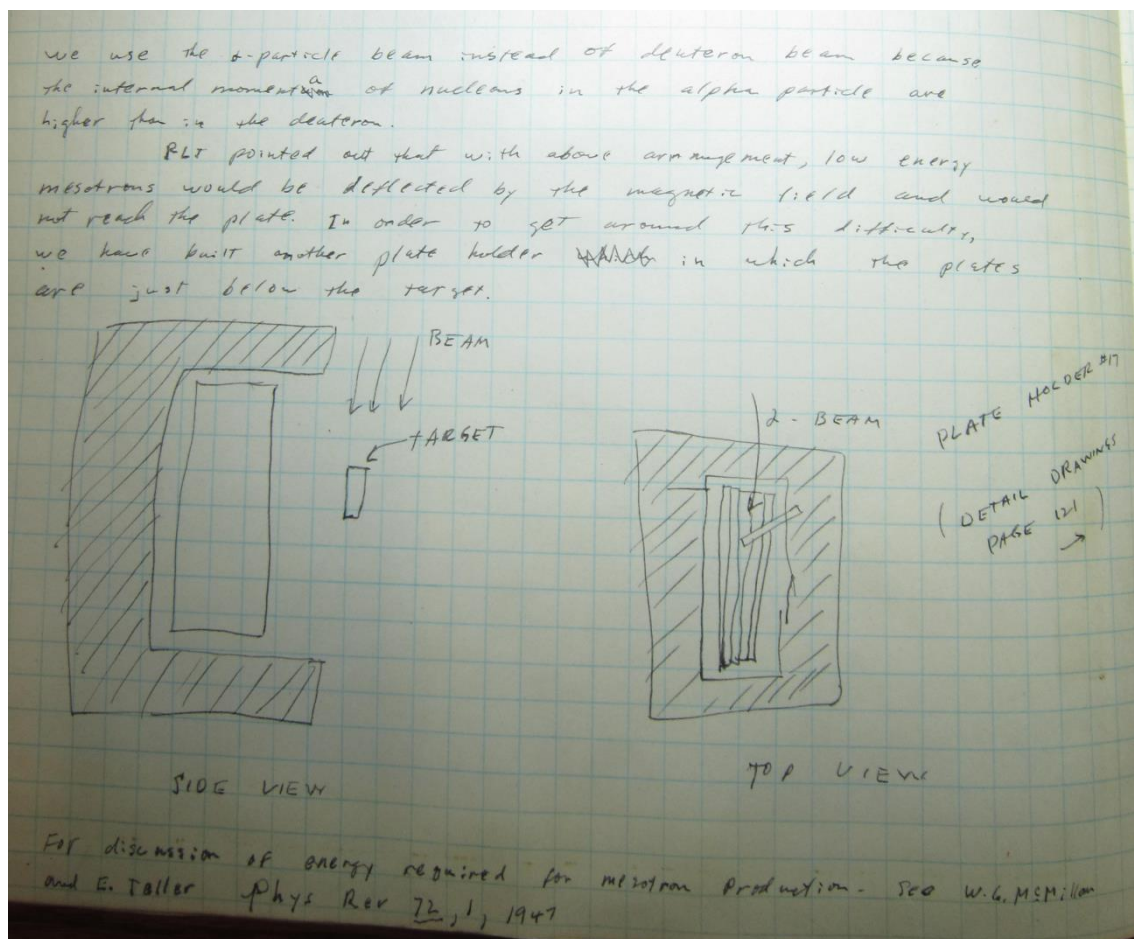 we use the α-particle beam instead of deuteron beam because
the internal momenta of nucleons in the alpha particle are
higher than in the deuteron.
RLT pointed out that with above arrangement, low energy
mesotrons would be deflected by the magnetic field and would
not reach the plate. In order to get around this difficulty,
we have built another plate holder in which the plates
are just below the target.
BEAM
TARGET
α - BEAM
PLATE HOLDER #17
( DETAIL DRAWINGS
PAGE 121 )
→
SIDE VIEW
TOP VIEW
For discussion of energy required for mesotron Production - See W.G. McMillan
and E. Teller Phys Rev 72, 1, 1947